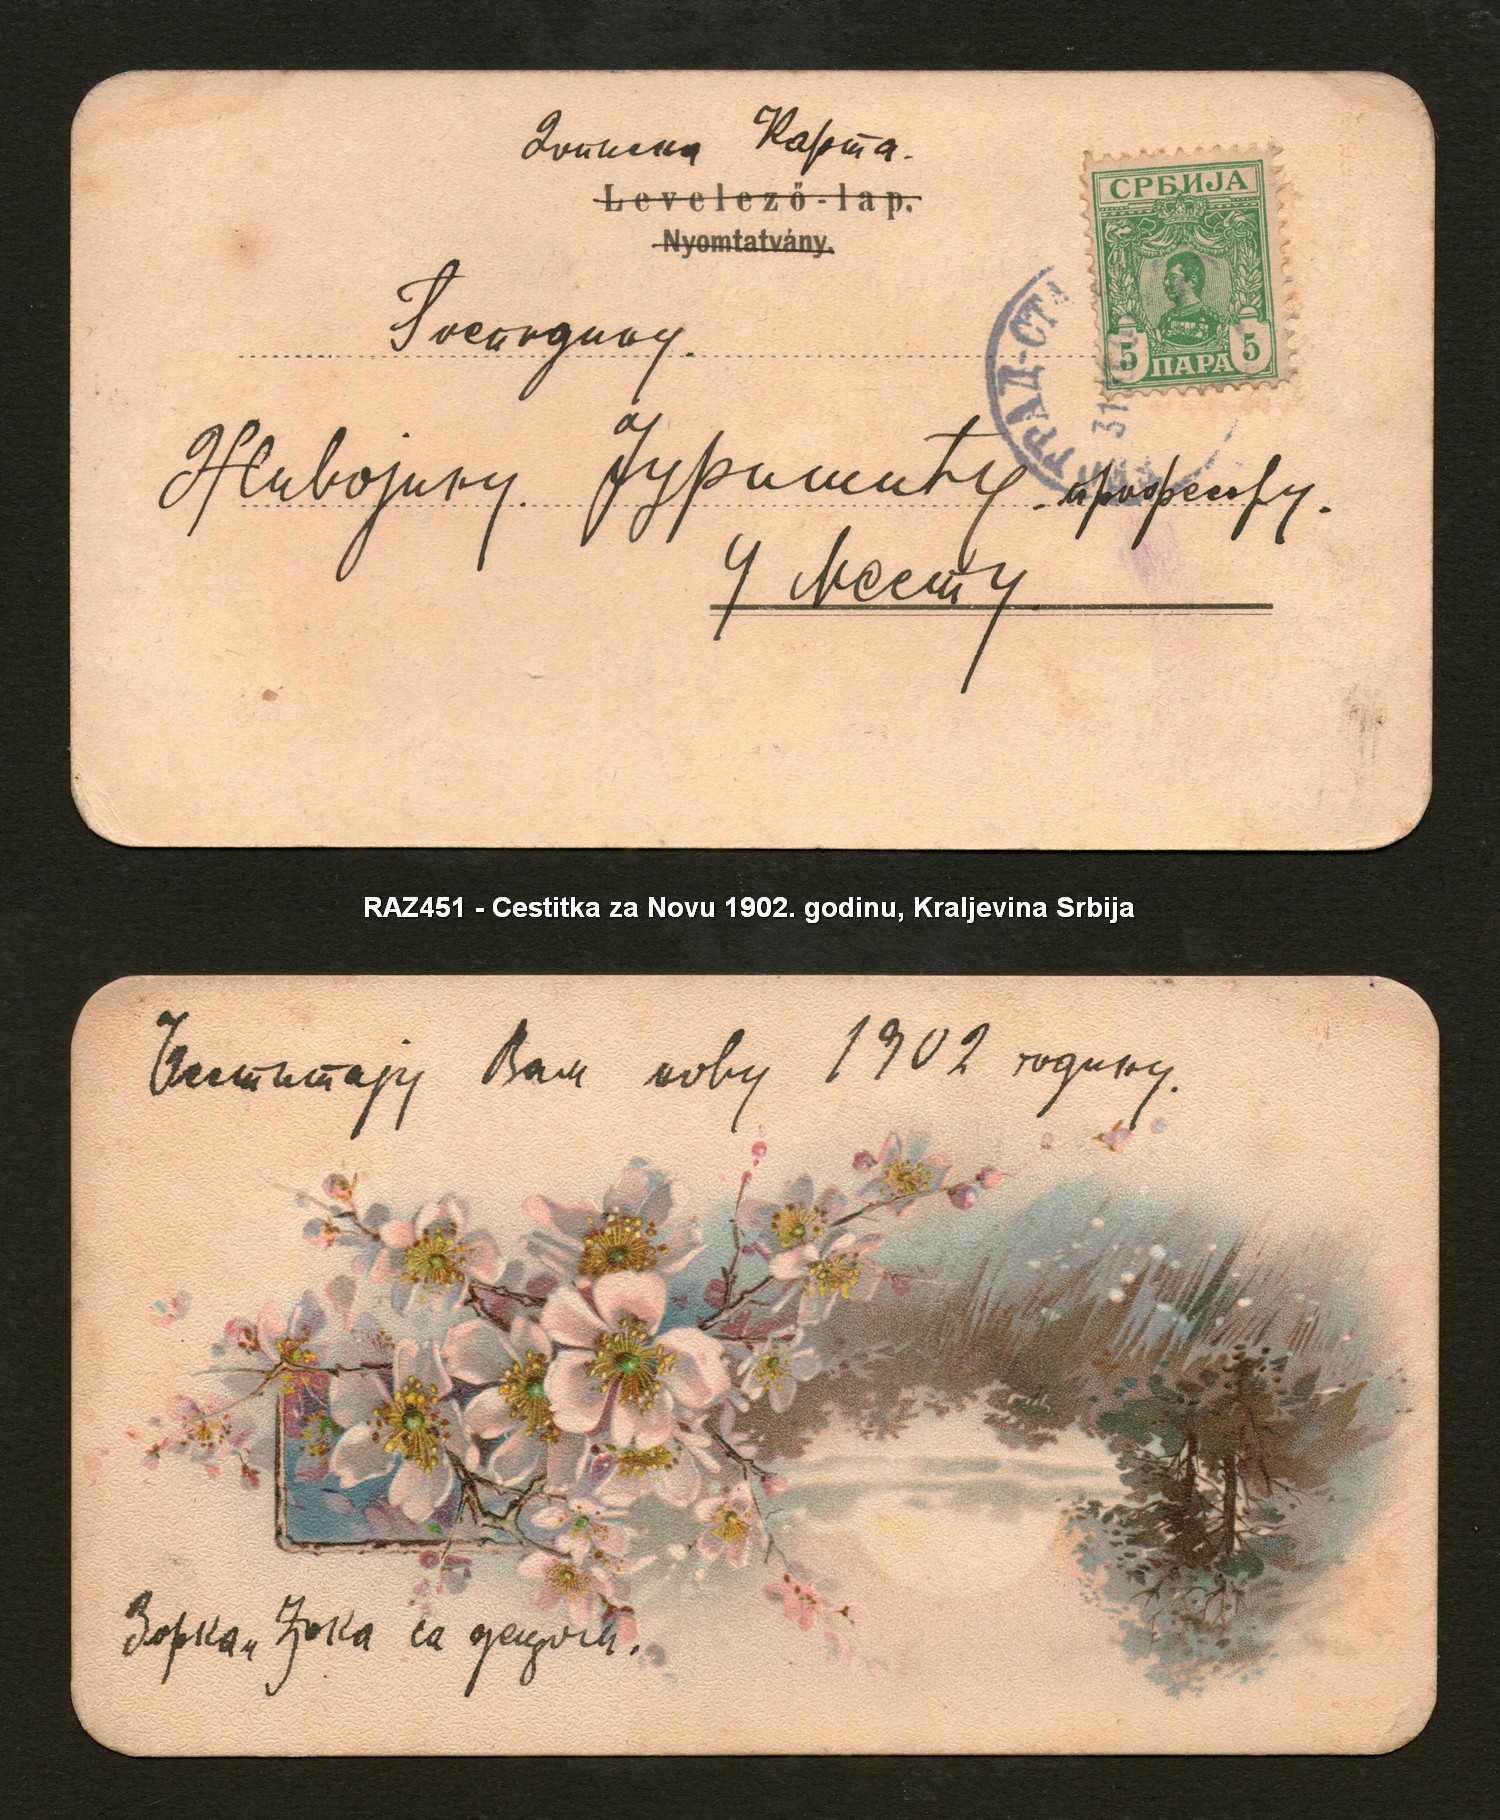 Дописна Карта.
Levelező-lap.
Nyomtatvány.
СРБИЈА
5 ПАРА 5
ГРАД-СТА
31
Господину.
Живојину Јуришићу професору.
У Месту
RAZ451 - Cestitka za Novu 1902. godinu, Kraljevina Srbija
Честитају Вам нову 1902 годину.
Зорка и са децом.